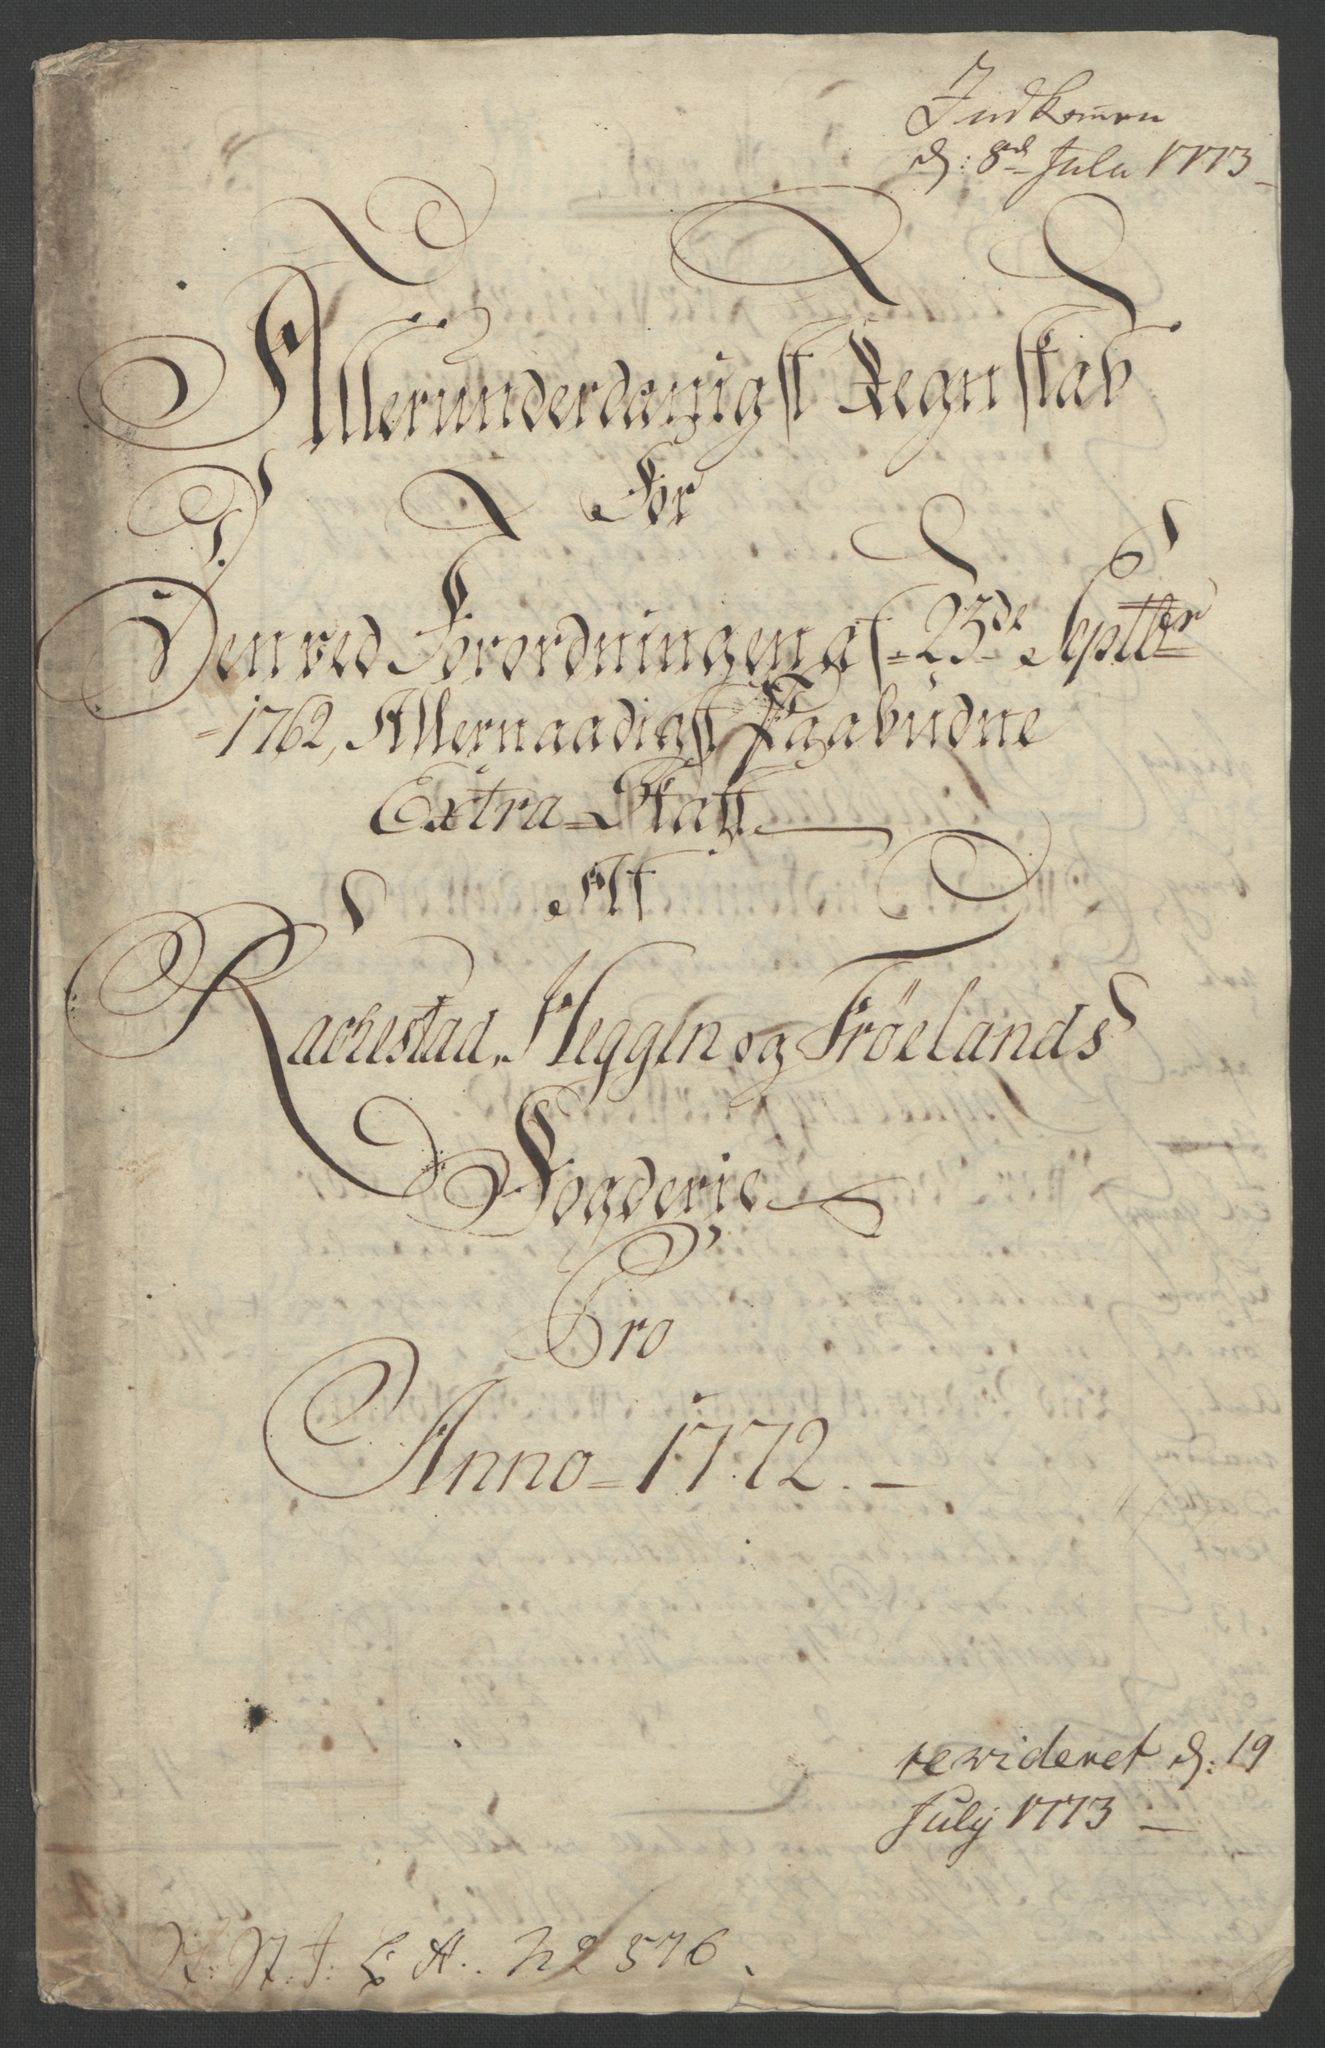 Indkommen
d: 8de Julii 1773
Allerunderdanigst Regnskab
For
Den ved Forordningen af 23de Septbr
1762, Allernaadigst Paabudne
Extra-Skatt
Af
Rachestad, Heggen og Fröelands
Fogderie
Pro
Anno 1772.
revideret d: 19
July 1773
A. No 576.